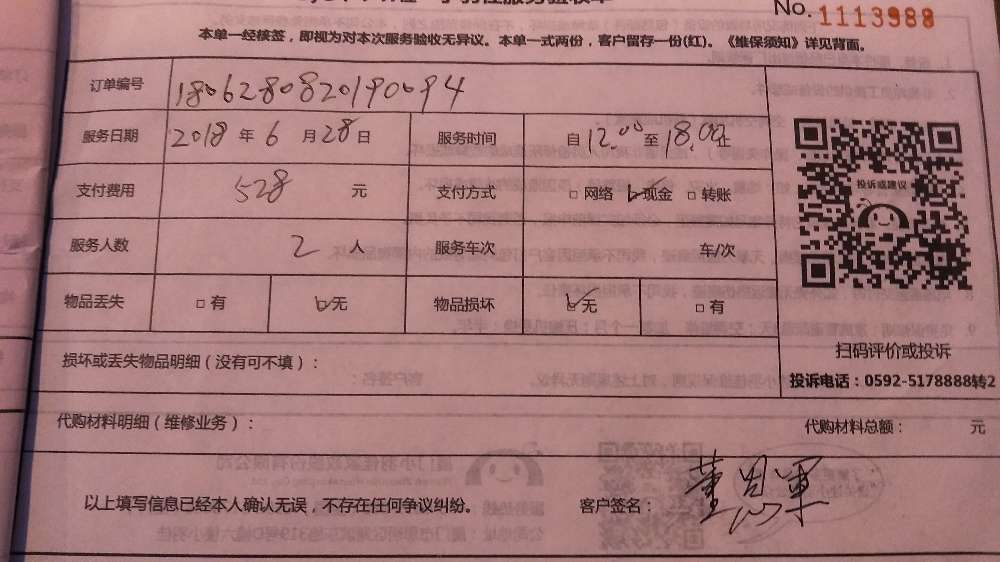 No. 1113988
本单一经核签，即视为对本次服务验收无异议。本单一式两份，客户留存一份(红)。《维保须知》详见背面。
订单编号 1806280820190094
服务日期 2018 年 6 月 28 日 服务时间 自 12.00 至 18.00 止
支付费用 528 元 支付方式 □ 网络 ☑ 现金 □ 转账
投诉或建议
服务人数 2 人 服务车次 车/次
物品丢失 □ 有 ☑ 无 物品损坏 ☑ 无 □ 有
扫码评价或投诉
损坏或丢失物品明细（没有可不填）：
投诉电话：0592-5178888转2
代购材料明细（维修业务）： 代购材料总额： 元
以上填写信息已经本人确认无误，不存在任何争议纠纷。 客户签名： 董思军